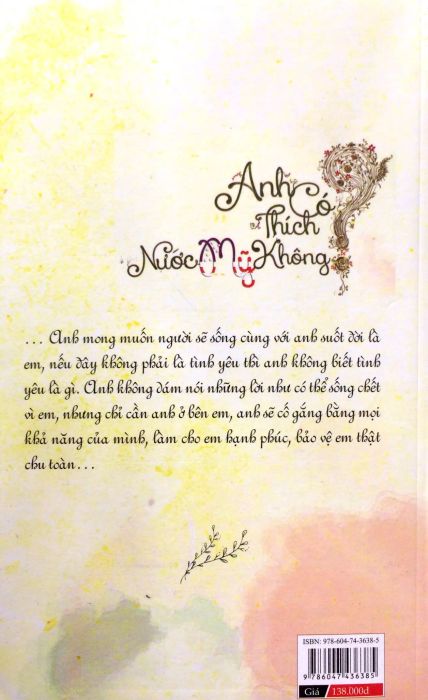 Anh Có
Thích
Nước Mỹ Không?
... Anh mong muốn người sẽ sống cùng với anh suốt đời là
em, nếu đây không phải là tình yêu thì anh không biết tình
yêu là gì. Anh không dám nói những lời như có thể sống chết
vì em, nhưng chỉ cần anh ở bên em, anh sẽ cố gắng bằng mọi
khả năng của mình, làm cho em hạnh phúc, bảo vệ em thật
chu toàn...
ISBN: 978-604-74-3638-5
9 786047 436385
Giá 138.000đ